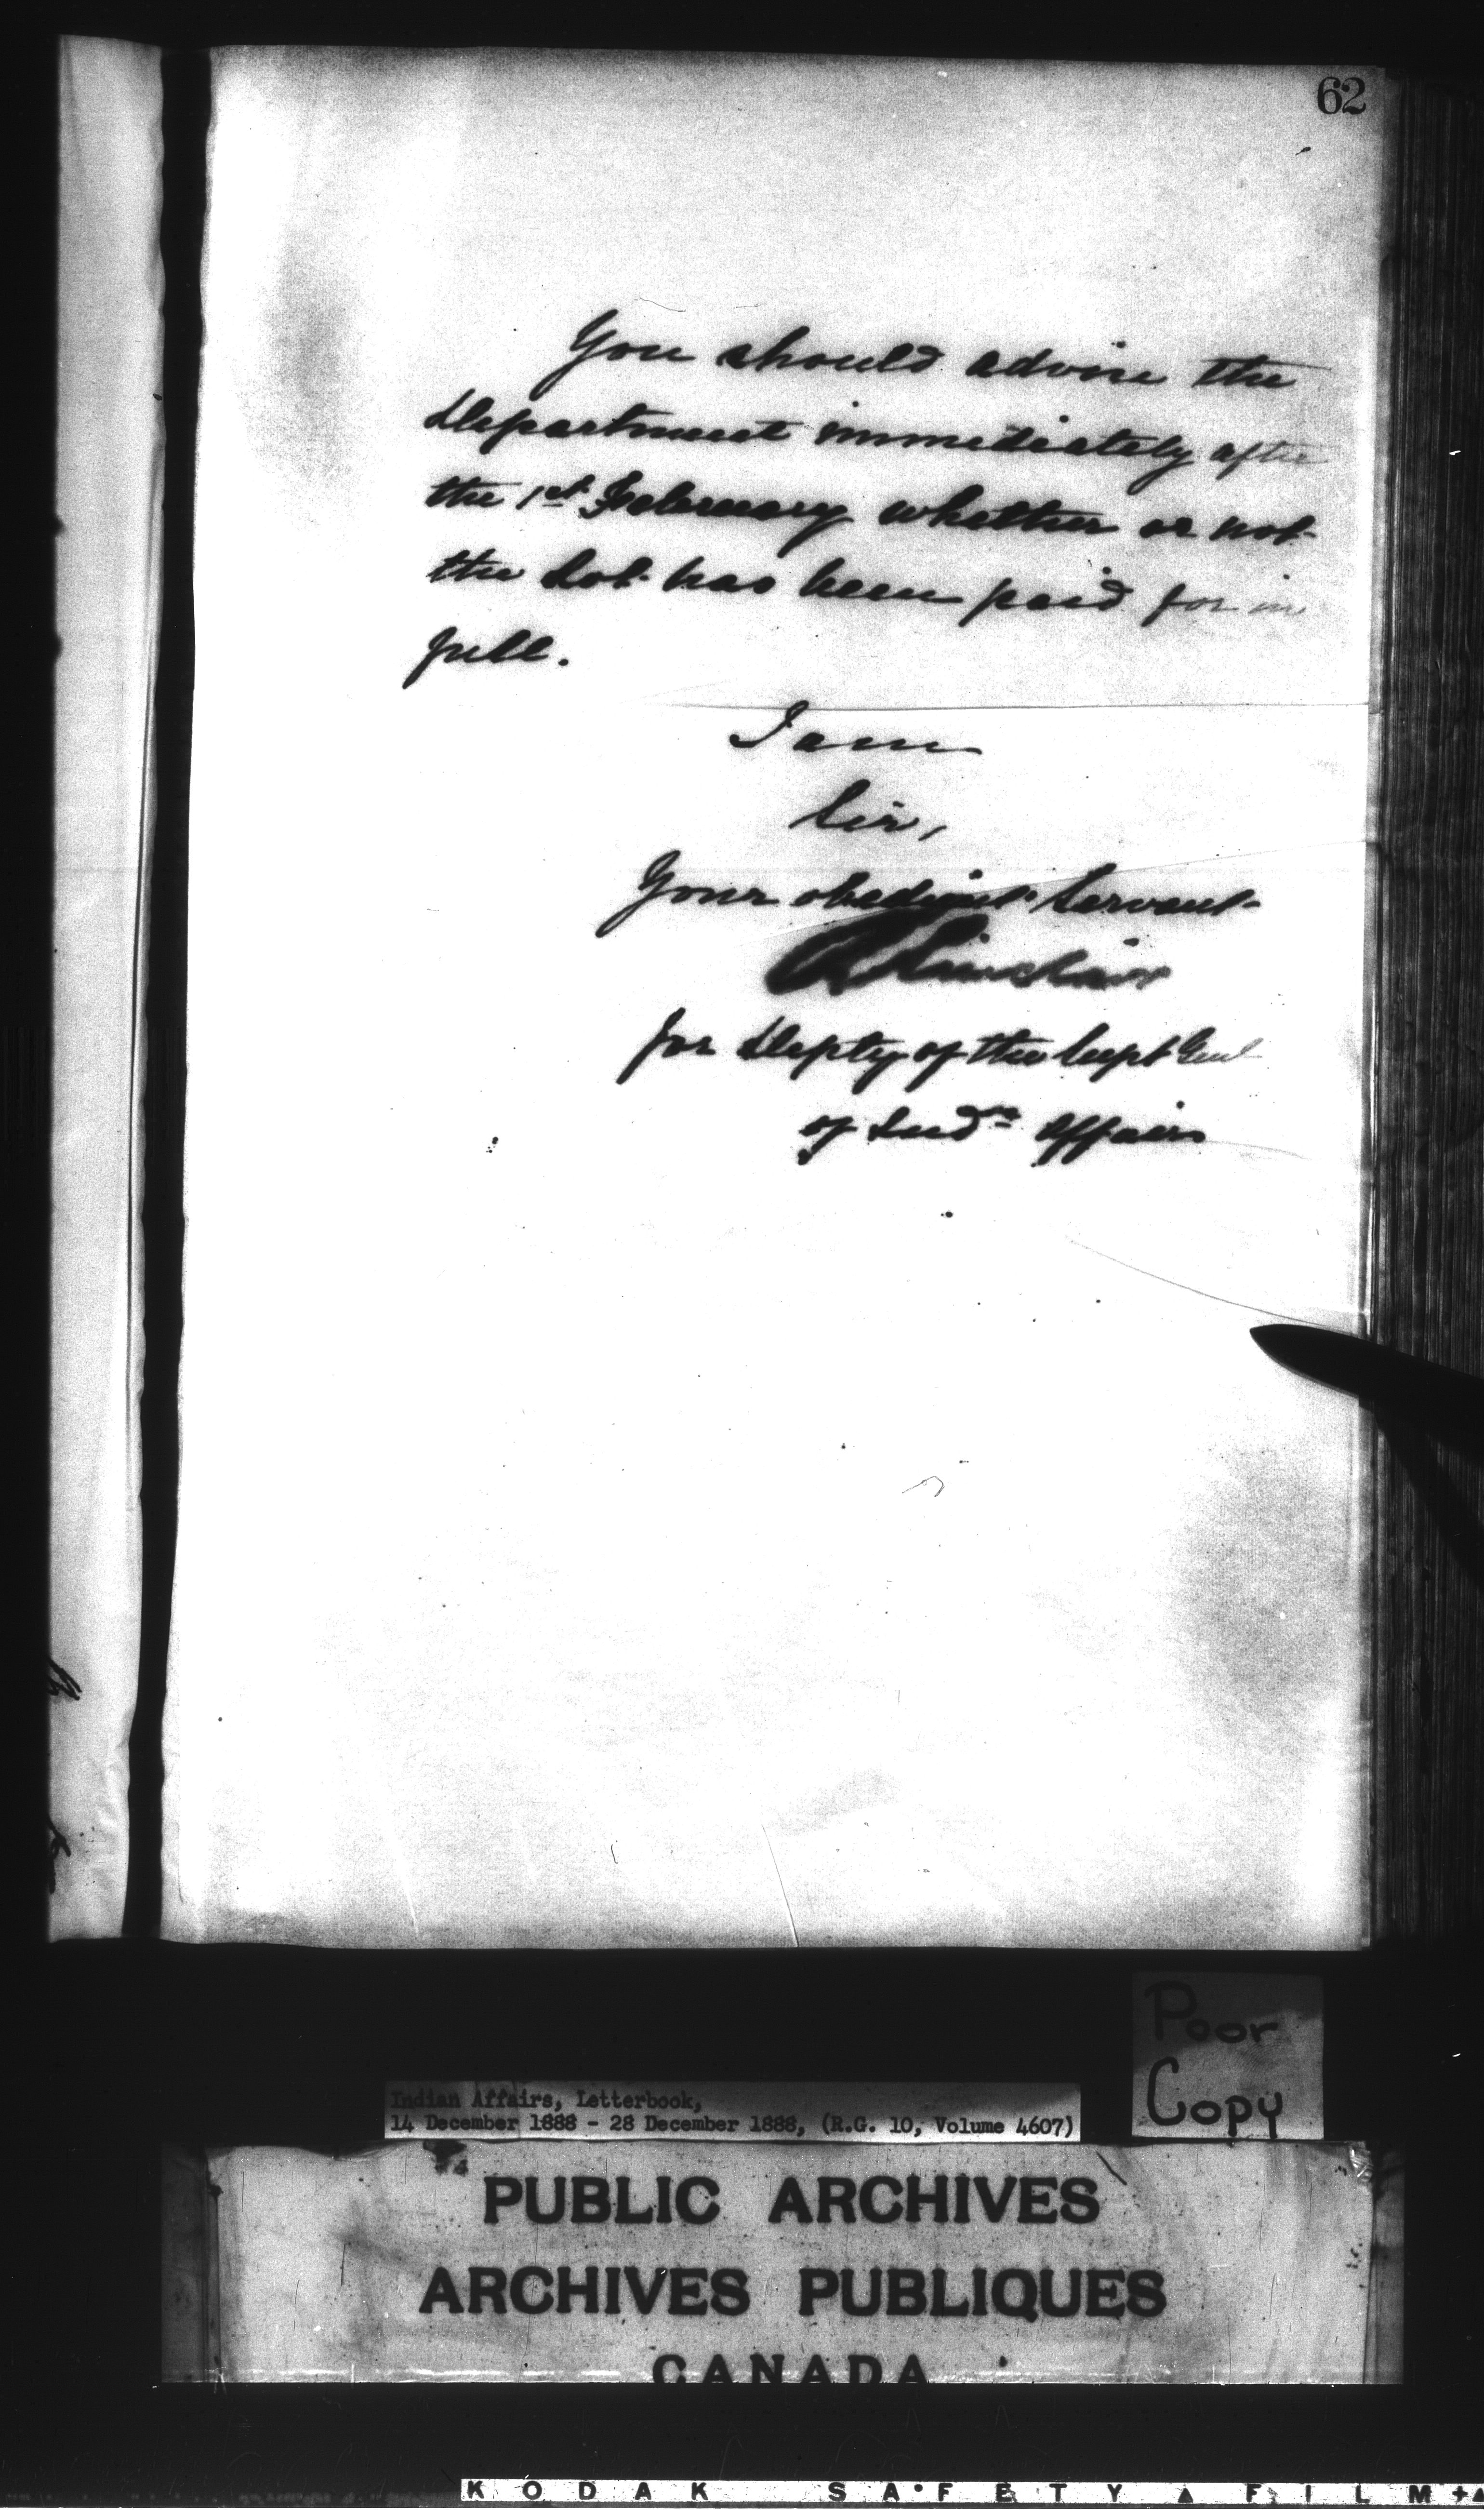 62
You should advise the
Department immediately after
the 1st February whether or not
the Lot has been paid for in
full.
I am
Sir,
Your obedient Servant
R Sinclair
for Depty of the Supt Genl
of Indn Affairs
Poor
Copy
Indian Affairs, Letterbook,
14 December 1888 - 28 December 1888, (R.G. 10, Volume 4607)
PUBLIC ARCHIVES
ARCHIVES PUBLIQUES
CANADA
KODAK SAFETY FILM